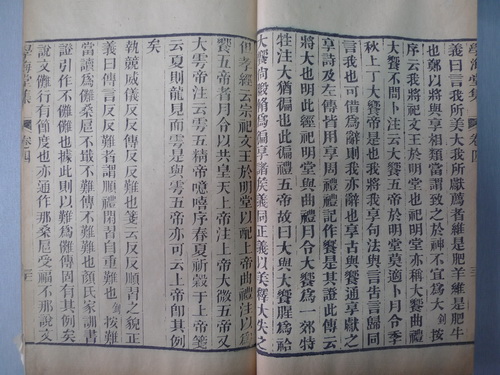 學海堂集
卷四
義曰言我所美大我所獻薦者維是肥羊維是肥牛
也鄭以將與享相類當謂致之於神不宜爲大劍按
序云我將祀文王於明堂也祀明堂亦稱大饗曲禮
大饗不問卜注云大饗五帝於明堂莫適卜月令季
秋上丁大饗帝是也我將我享句法與言告言歸同
言我也可借爲辭則我亦辭也享古與饗通享獻之
享詩及左傳皆用享周禮禮記作饗是其證此傳云
將大也明此經祀明堂與曲禮月令大饗爲一郊特
牲注大猶徧也此徧禮五帝故曰大與大饗腥爲祫
大饗尚腶脩爲徧享諸矦義同正義以美釋大失之
但孝經云宗祀文王於明堂以配上帝曲禮注以爲
饗五帝者月令以共皇天上帝注上帝大微五帝又
大雩帝注云雩五精帝噫嘻序春夏祈穀于上帝箋
云夏則龍見而雩是與雩五帝亦可云上帝卽其例
矣
執競威儀反反傳反反難也箋云反反順習之貌正
義曰傳言反反難者謂順禮閑習自重難也劍按難
當讀爲儺桑扈不戢不難傳不難難也顏氏家訓書
證引作不儺儺也據此則以難爲儺傳固有其例矣
說文儺行有節度也亦通作那桑扈受福不那說文
學海堂集
卷四